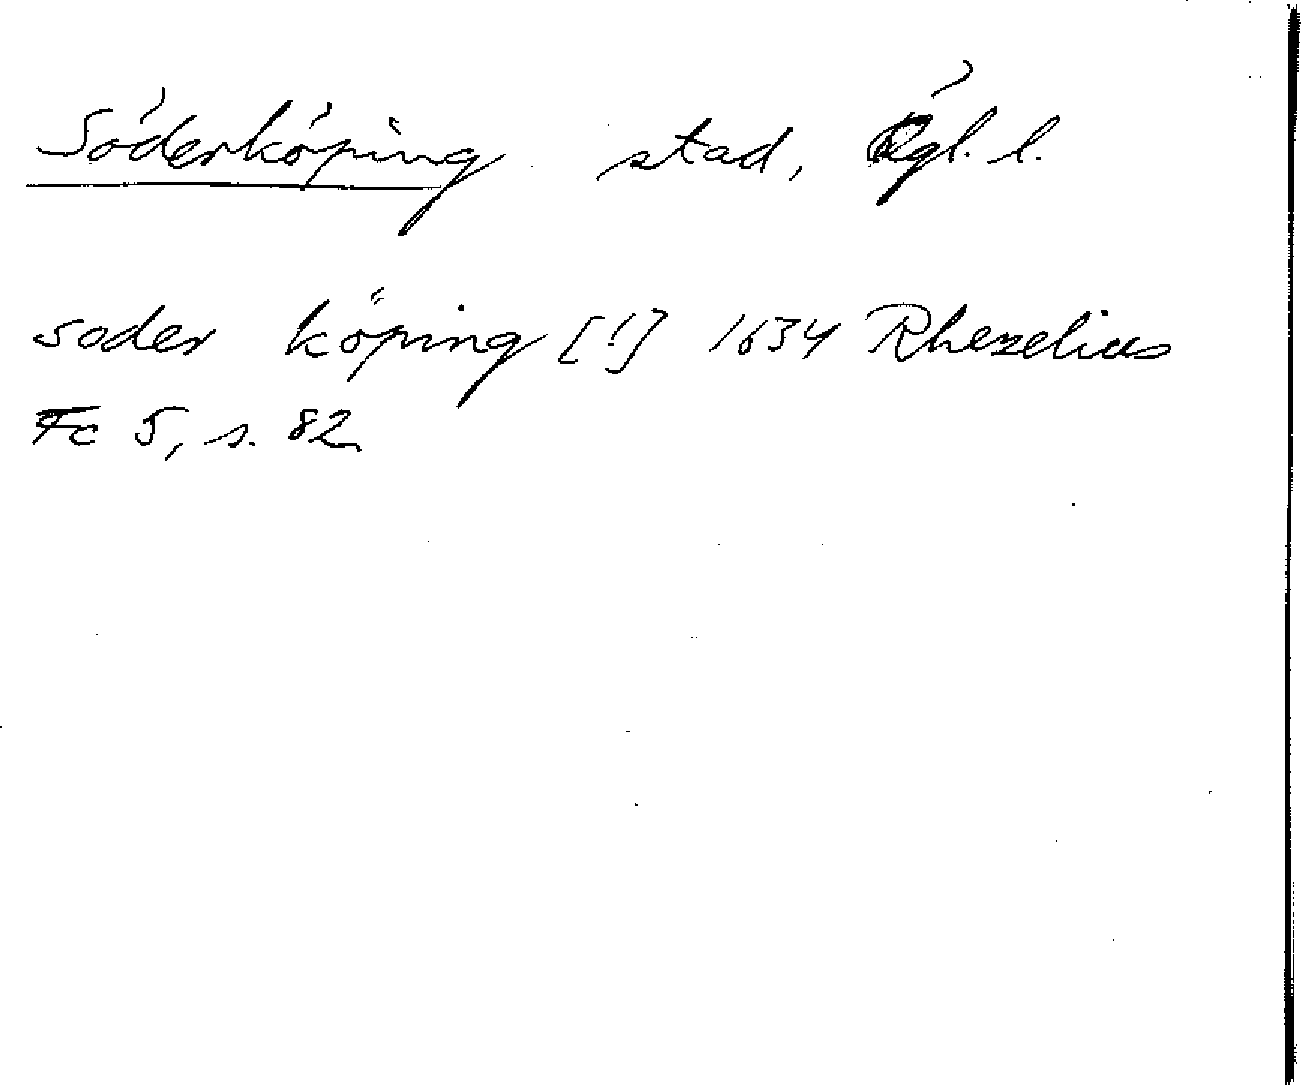 Söderköping stad, Ögl. l.
soder köping [!] 1634 Rhezelius
Fc 5, s. 82